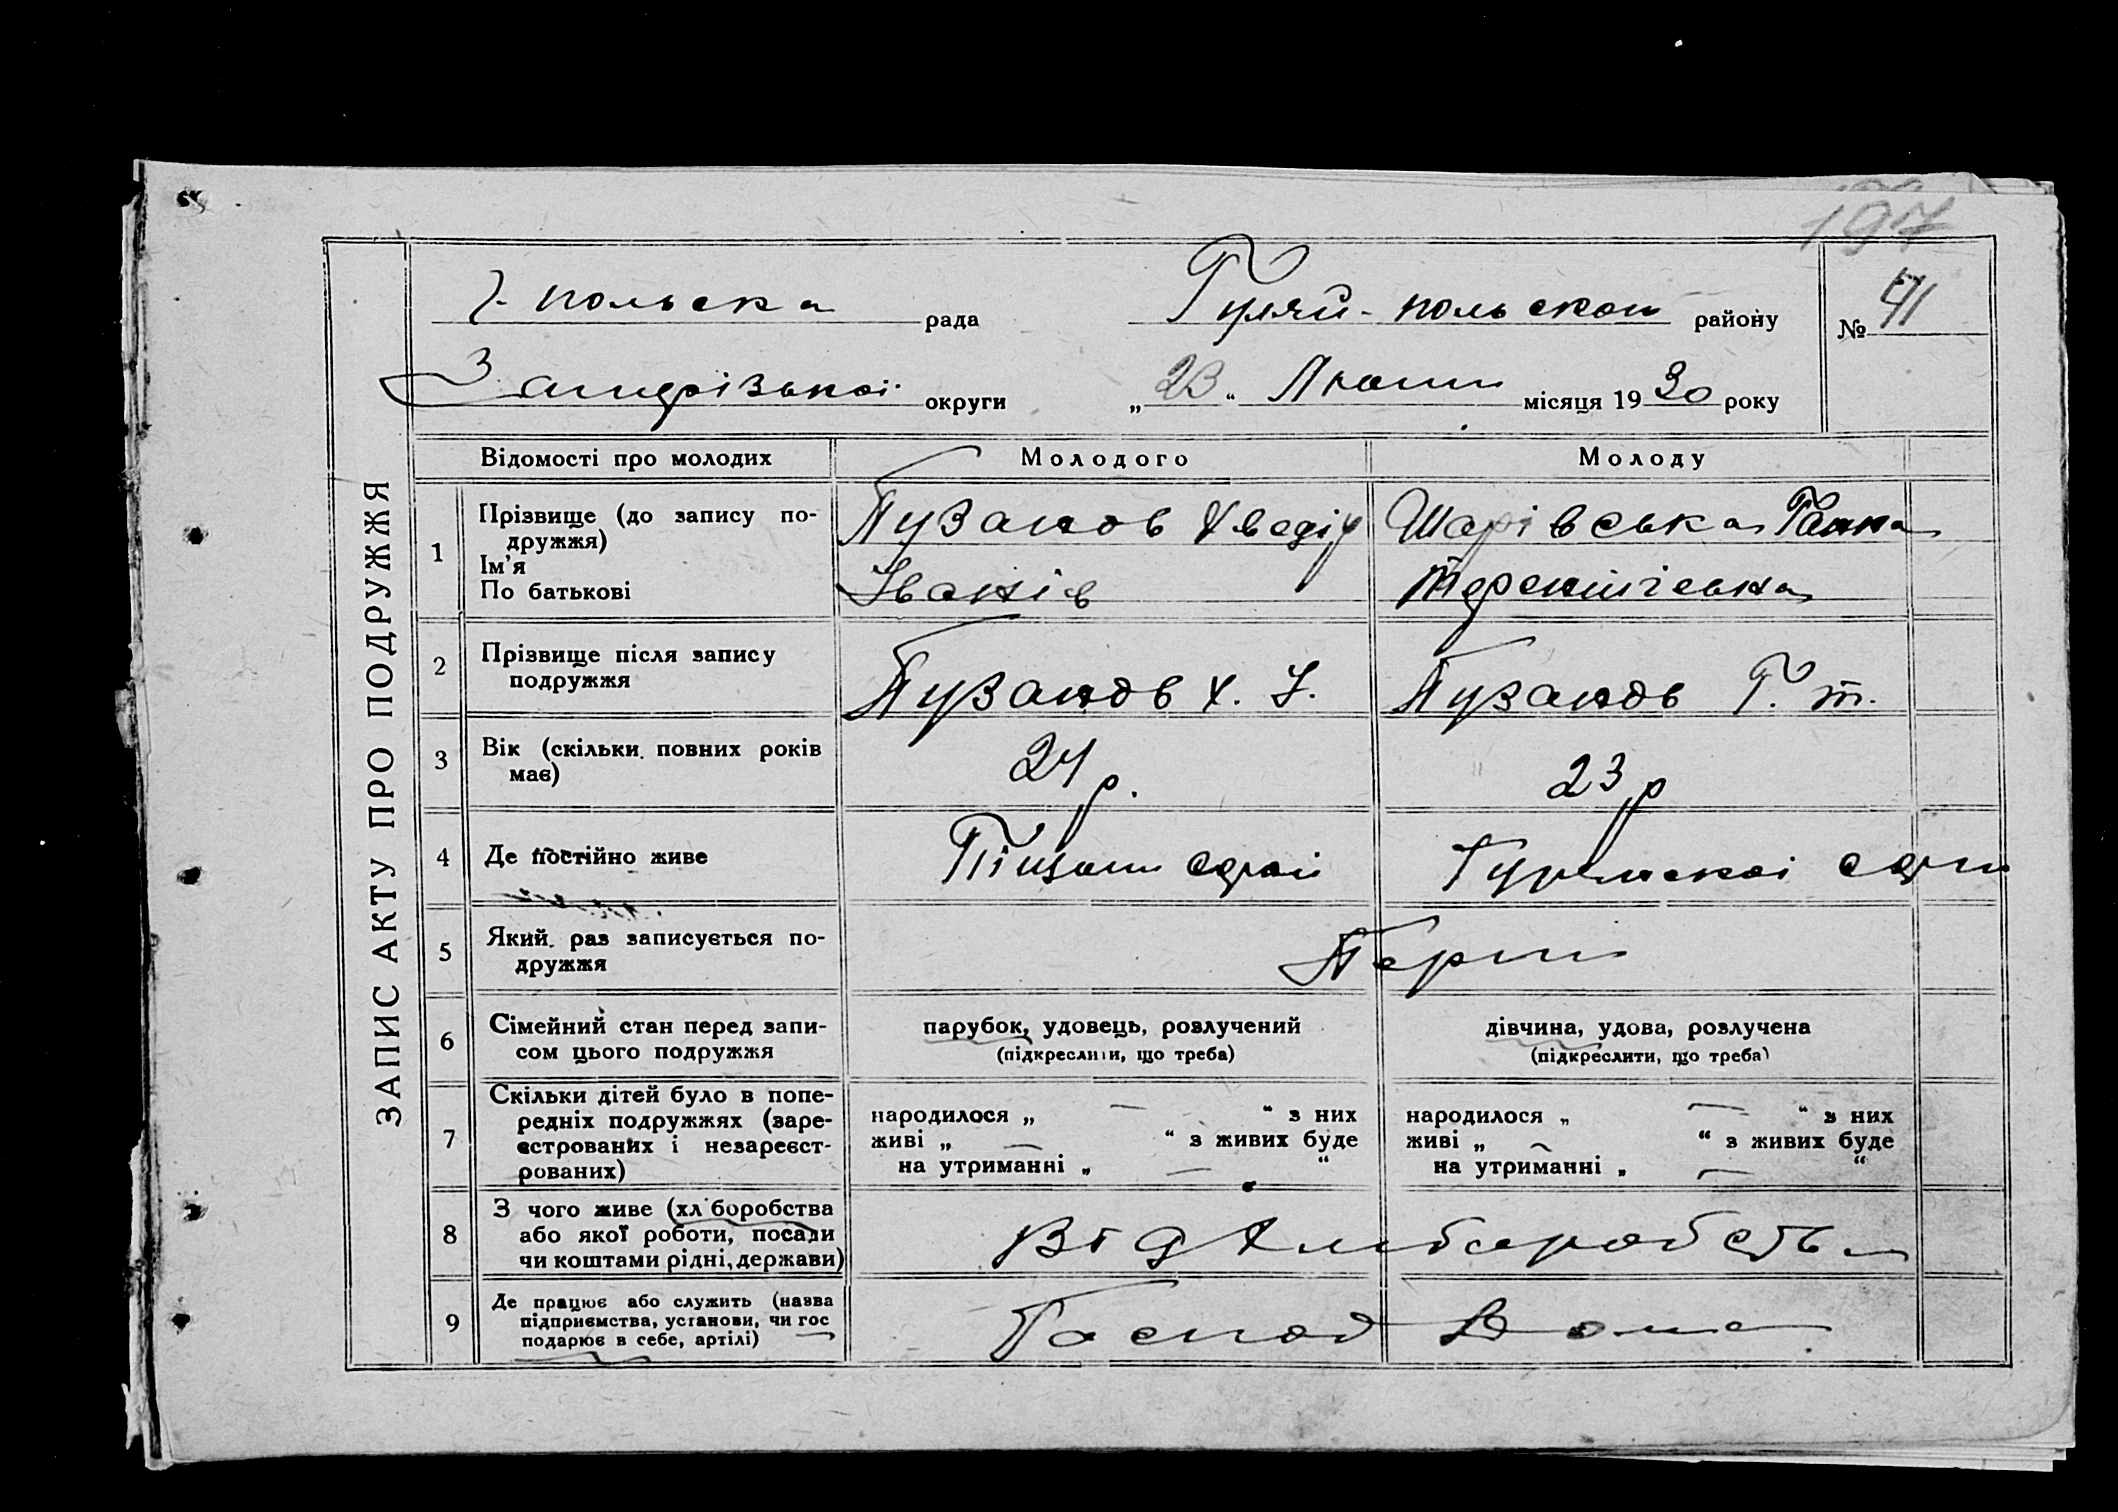 197
Г. польска рада Гуляй-польской району № 41
Запорізької округи „23“ Лютий місяця 1930 року
ЗАПИС АКТУ ПРО ПОДРУЖЖЯ
Відомості про молодих Молодого Молоду
1 Прізвище (до запису по-
дружжя)
Ім'я
По батькові
Пузанов Хведір
Іванів
Шарівська Ганна
2 Прізвище після запису
подружжя
Пузанов Х. І. Пузанов Г. Т.
3 Вік (скільки повних років
має)
24 р. 23 р
4 Де постійно живе
5 Який раз записується по-
дружжя
Перши
6 Сімейний стан перед запи-
сом цього подружжя
парубок, удовець, розлучений
(підкреслити, що треба)
дівчина, удова, розлучена
(підкреслити, що треба)
7 Скільки дітей було в попе-
редніх подружжях (заре-
єстрованих і незареєст-
рованих)
народилося „ — “ з них
живі „ — “ з живих буде
на утриманні „ — “
народилося „ — “ з них
живі „ — “ з живих буде
на утриманні „ — “
8 З чого живе (хліборобства
або якої роботи, посади
чи коштами рідні, держави)
Від хліборобства
9 Де працює або служить (назва
підприємства, установи, чи гос
подарює в себе, артілі)
Господ Дома